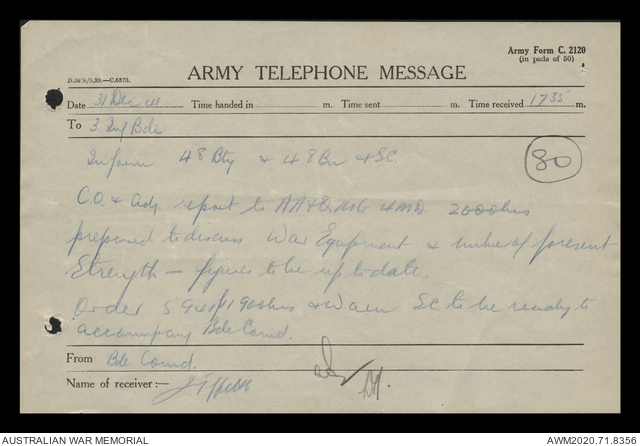 Army Form C. 2120
(in pads of 50)
ARMY TELEPHONE MESSAGE
Date 31 Dec 41 Time handed in m. Time sent m. Time received 1735 m.
To 3 Inf Bde
Inform 48 Bty & 48 Bn & SC.
80
C.O. & Adj report to AA&QMG 4MD 2000hrs
prepared to discuss War Equipment & of present
Strength — figures to be up to date.
Order 1900hrs & Warn SC. to be ready to
accompany Bde Comd.
From Bde Comd.
Name of receiver :—
AUSTRALIAN WAR MEMORIAL
AWM2020.71.8356